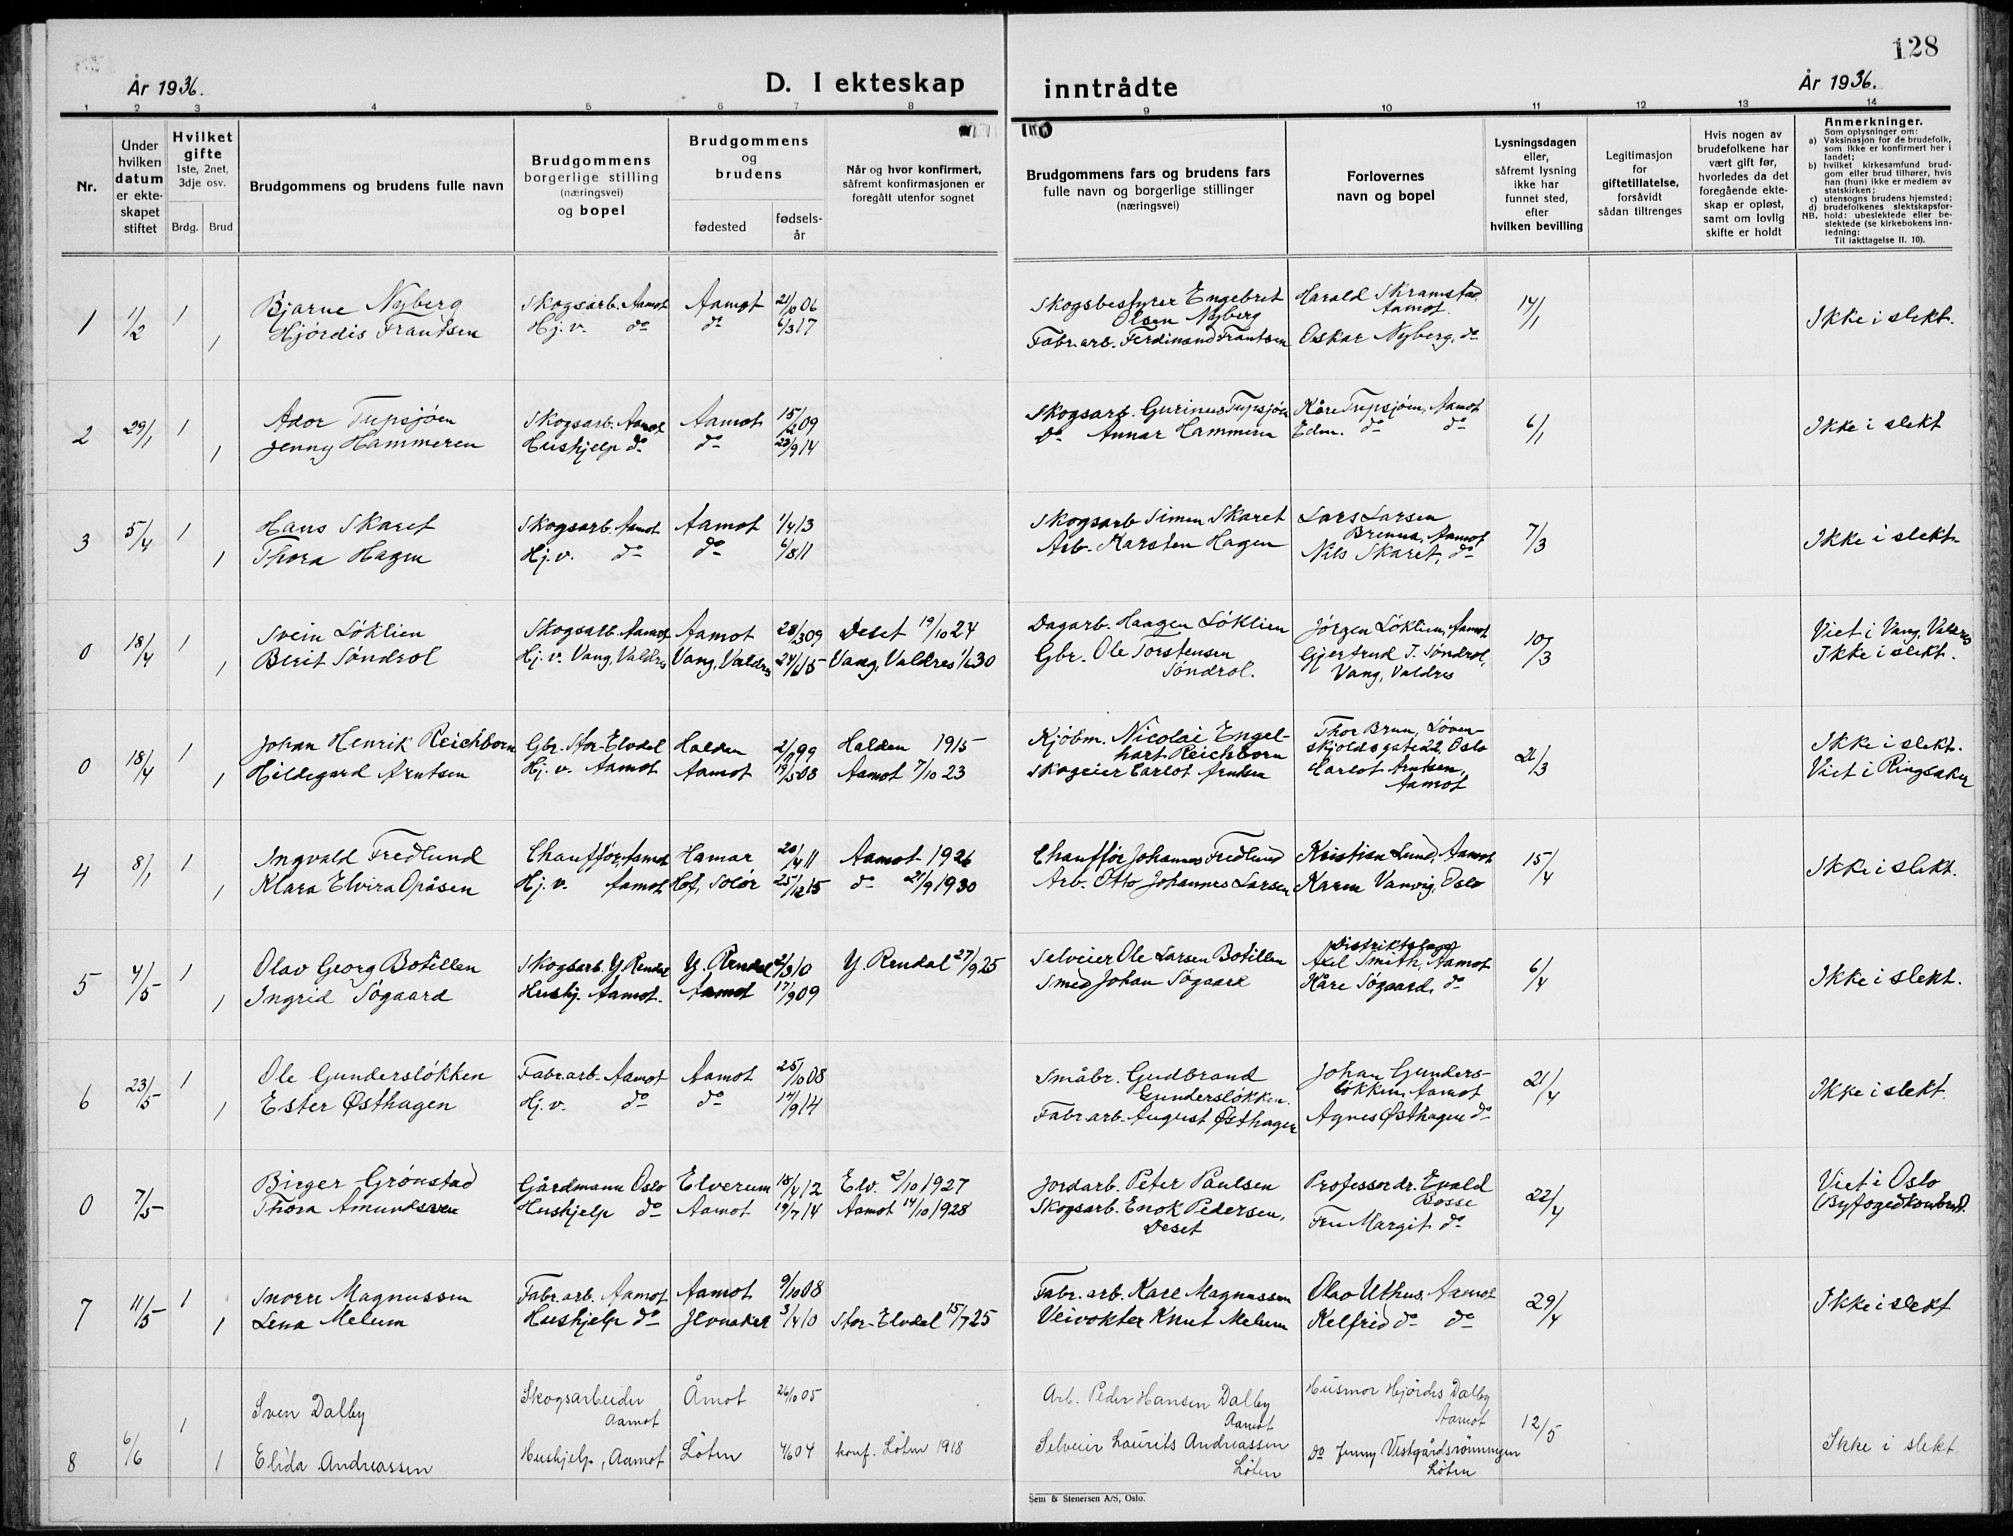 128
År 1936.
D. I ekteskap inntrådte
År 1936.
1 2 3 4 5 6 7 8 9 10 11 12 13 14
Nr.
Under hvilken datum er ekteskapet stiftet
Hvilket gifte 1ste, 2net, 3dje osv.
Brdg. Brud
Brudgommens og brudens fulle navn
Brudgommens borgerlige stilling (næringsvei) og bopel
Brudgommens og brudens
fødested
fødselsår
Når og hvor konfirmert, såfremt konfirmasjonen er foregått utenfor sognet
Brudgommens fars og brudens fars fulle navn og borgerlige stillinger (næringsvei)
Forlovernes navn og bopel
Lysningsdagen eller, såfremt lysning ikke har funnet sted, efter hvilken bevilling
Legitimasjon for giftetillatelse, forsåvidt sådan tiltrenges
Hvis nogen av brudefolkene har vært gift før, hvorledes da det foregående ekteskap er opløst, samt om lovlig skifte er holdt
Anmerkninger.
Som oplysninger om:
a) Vaksinasjon for de brudefolk, som ikke er konfirmert her i landet;
b) hvilket kirkesamfund brudgom eller brud tilhører, hvis han (hun) ikke er medlem av statskirken;
c) utensogns brudens hjemsted;
d) brudefolkenes slektskapsforhold: ubeslektede eller beslektede (se kirkebokens innledning:
NB.
Til iakttagelse II. 10).
1 1/2 1 Bjarne Nyberg Skogsarb. Aamot Aamot 21/10 06 Skogsbestyrer Engebret Olsen Nyberg Harald Skramstad, Aamot. 14/1 Ikke i slekt.
1 Hjørdis Frantsen Hj. v. do do 6/3 17 Fabr.arb. Ferdinand Frantsen Oskar Nyberg, do
2 29/1 1 Ador Tupsjøen Skogsarb. Aamot Aamot 15/2 09 Skogsarb. Gurinus Tupsjøen Kåre Tupsjøen, Aamot 6/1 Ikke i slekt
1 Jenny Hammeren Hushjelp do do 23/9 14 Do Annar Hammeren Edm. do do
3 5/4 1 Hans Skaret Skogsarb. Aamot Aamot 1/4 13 Skogsarb Simen Skaret Lars Larsen Brenna, Aamot 7/3 Ikke i slekt
1 Thora Hagen Hj. v. do do 6/8 11 Arb. Karsten Hagen Nils Skaret, do
0 18/4 1 Svein Løklien Skogsarb. Aamot Aamot 28/3 09 Deset 19/10 24 Dagarb. Haagen Løklien Jørgen Løklien, Aamot 10/3 Viet i Vang, Valdres
1 Berit Søndrol Hj. v. Vang, Valdres Vang, Valdres 24/1 15 Vang, Valdres 1/6 30 Gbr. Ole Torstensen Søndrol. Gjertrud T. Søndrol, Vang, Valdres Ikke i slekt.
0 18/4 1 Johan Henrik Reichborn Gbr. Stor-Elvdal Halden 2/9 99 Halden 1915 Kjøbm. Nicolai Engelhart Reichborn Thor Brun, Løvenskjoldsgate 22, Oslo 21/3 Ikke i slekt.
1 Hildegard Arntsen Hj. v. Aamot Aamot 19/5 08 Aamot 7/10 23 Skogeier Carlot Arntsen Carlot Arntsen, Aamot Viet i Ringsaker
4 8/1 1 Ingvald Fredlund Chauffør, Aamot Hamar 20/4 11 Aamot 1926 Chauffør Johannes Fredlund Kristian Lund, Aamot 15/4 Ikke i slekt.
1 Klara Elvira Opåsen Hj. v. Aamot Hof, Solør 25/12 15 do 21/9 1930 Arb. Otto Johannes Larsen Karen Vanvig, Oslo
5 4/5 1 Olav Georg Botillen Skogsarb. Y. Rendal Y. Rendal 2/3 10 Y. Rendal 27/9 25 Selveier Ole Larsen Botillen Distriktslege Axel Smith, Aamot 6/4 Ikke i slekt.
1 Ingrid Søgaard Hushj. Aamot. Aamot 17/9 09 Smed Johan Søgaard Kåre Søgaard, do
6 23/5 1 Ole Gundersløkken Fabr.arb. Aamot Aamot 25/10 08 Småbr. Gudbrand Gundersløkken. Johan Gundersløkken, Aamot 21/4 Ikke i slekt.
1 Ester Østhagen Hj. v. do do 14/9 14 Fabr.arb. August Østhagen Agnes Østhagen do
0 7/5 Birger Grønstad Gårdmann Oslo Elverum 18/4 12 Elv. 2/10 1927 Jordarb. Peter Paulsen Professor dr. Evald Bosse 22/4 Viet i Oslo
Thora Amundsen Hushjelp do Aamot 19/7 14 Aamot 14/10 1928 Skogsarb. Enok Pedersen, Deset Fru Margit do
7 11/5 1 Snorre Magnussen Fabr. arb. Aamot Aamot 9/10 08 Fabr. arb. Karl Magnussen Olav Uthus, Aamot 29/4 Ikke i slekt
1 Lena Melum Hushjelp do Jevnaker 3/4 10 Stor-Elvdal 15/7 25 Veivokter Knut Melum Kelfrid do do
8 6/6 1 Sven Dalby Skogsarbeider Aamot Åmot 26/10 05 Arb. Peder Hansen Dalby Aamot Husmor Hjørdis Dalby Aamot 12/5 Ikke i slekt
1 Elida Andreassen Hushjelp, Aamot Løten 4/6 04 konf. Løten 1918 Selveier Laurits Andreassen Løten do Jenny Vestgårdsrønningen Løten
Sem & Stenersen A/S, Oslo.